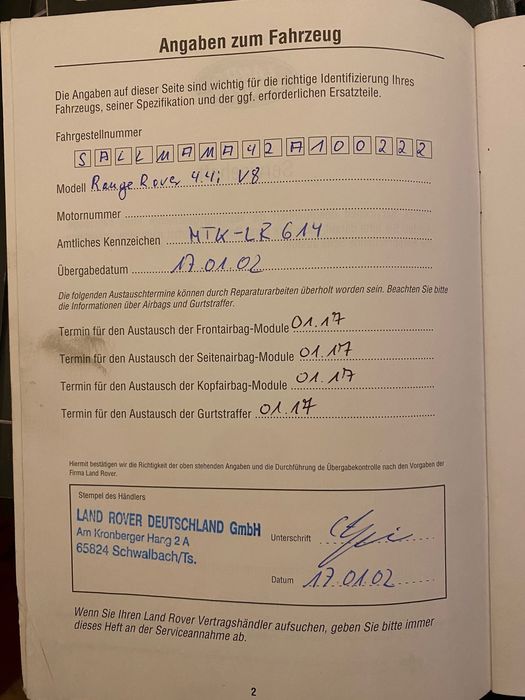 Angaben zum Fahrzeug
Die Angaben auf dieser Seite sind wichtig für die richtige Identifizierung Ihres
Fahrzeugs, seiner Spezifikation und der ggf. erforderlichen Ersatzteile.
Fahrgestellnummer
SALLMAMA42A100222
Modell Range Rover 4.4i V8
Motornummer
Amtliches Kennzeichen MTK-LR 614
Übergabedatum 17.01.02
Die folgenden Austauschtermine können durch Reparaturarbeiten überholt worden sein. Beachten Sie bitte
die Informationen über Airbags und Gurtstraffer.
Termin für den Austausch der Frontairbag-Module 01.17
Termin für den Austausch der Seitenairbag-Module 01.17
Termin für den Austausch der Kopfairbag-Module 01.17
Termin für den Austausch der Gurtstraffer 01.17
Hiermit bestätigen wir die Richtigkeit der oben stehenden Angaben und die Durchführung de Übergabekontrolle nach den Vorgaben der
Firma Land Rover.
Stempel des Händlers
LAND ROVER DEUTSCHLAND GmbH
Am Kronberger Hang 2 A
65824 Schwalbach/Ts.
Unterschrift
Datum 17.01.02
Wenn Sie Ihren Land Rover Vertragshändler aufsuchen, geben Sie bitte immer
dieses Heft an der Serviceannahme ab.
2